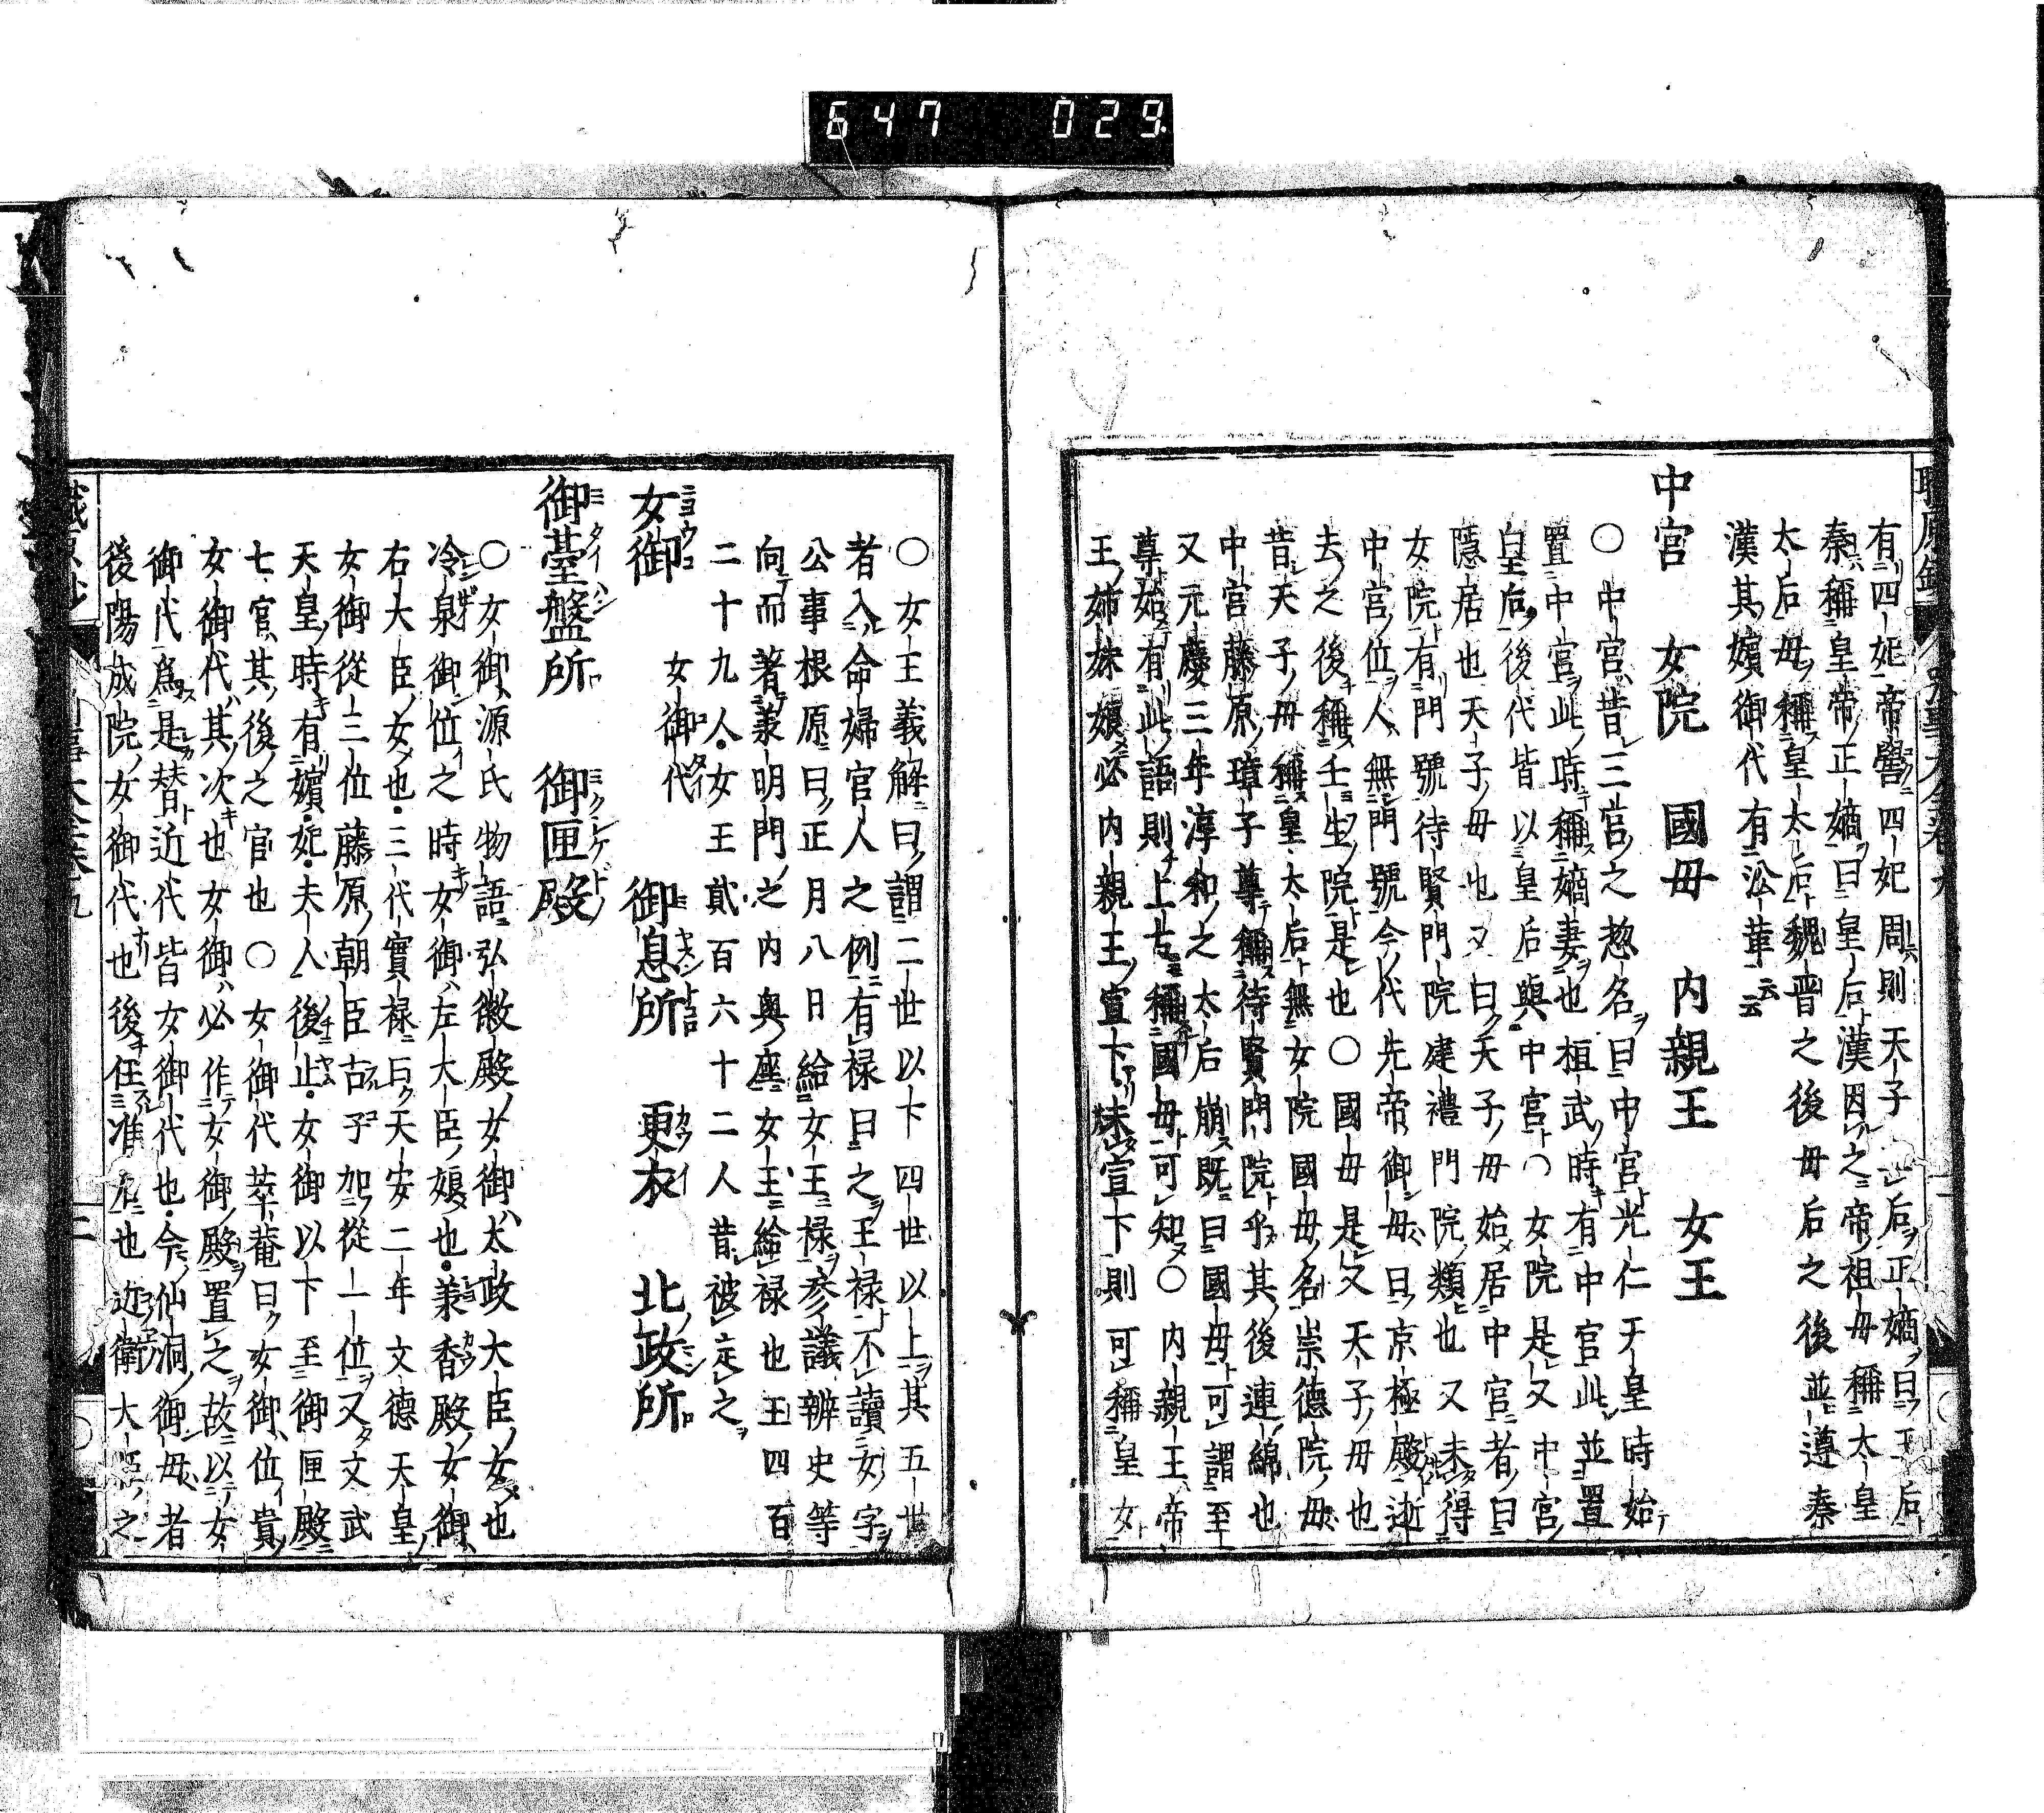 647 029
有四妃帝嚳四妃周則天子后正嫡曰王后
秦稱皇帝正嫡曰皇后漢因之帝祖母稱太皇
太后母稱皇太后魏晋之後母后之後並遵秦
漢其嬪御代有沿革云云
中宮 女院 國母 内親王 女王
〇中宮昔三宮之惣名曰中宮光仁天皇時始
置中宮此時稱嫡妻也桓武時有中宮此並置
皇后後代皆以皇后與中宮〇女院是又中宮
隱居也天子母也又曰天子母始居中宮者曰
女院有門號待賢門院建禮門院類也又未得
中宮位人無門號今代先帝御母曰京極殿逝
去之後稱壬生院是也〇國母是又天子母也
昔天子母稱皇太后無女院國母名崇德院母
中宮藤原璋子尊稱待賢門院乎其後連綿也
又元慶三年淳和之太后崩既曰國母可謂至
尊始有此語則上古稱國母可知〇内親王帝
王姉妹孃必内親王宣下未宣下則可稱皇女
〇女王義解曰謂二世以下四世以上其五世
者入命婦官人之例有禄曰之王禄不讀女字
公事根原曰正月八日給女王禄参議辨史等
向而著兼明門之内奥座女王給禄也王四百
二十九人女王貳百六十二人昔彼定之
女御 女御代 御息所 更衣 北政所
御臺盤所 御匣殿
〇女御源氏物語弘徽殿女御太政大臣女也
冷泉御位之時女御左大臣孃也兼香殿女御
右大臣女也三代實禄曰天安二年文德天皇
女御從三位藤原朝臣古子加從一位又文武
天皇時有嬪妃夫人後止女御以下至御匣殿
七官其後之官也〇女御代莘菴曰女御位貴
女御代其次也女御必作女御殿置之故以女
御代爲是替近代皆女御代也今仙洞御母者
後陽成院女御代也後任准后也近衛大臣之